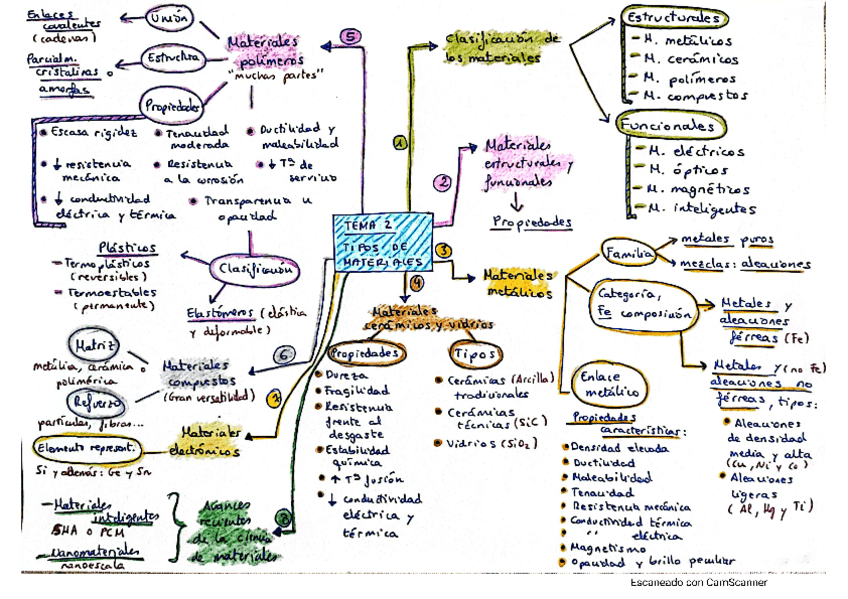 TEMA 2
TIPOS DE
MATERIALES
1
Clasificación de
los materiales
Estructurales
- M. metálicos
- M. cerámicos
- M. polímeros
- M. compuestos
Funcionales
- M. eléctricos
- M. ópticos
- M. magnéticos
- M. inteligentes
2
Materiales
estructurales y
funcionales
Propiedades
3
Materiales
metálicos
Familia
metales puros
mezclas: aleaciones
Categoría,
Fe composición
Metales y
aleaciones
férreas (Fe)
Metales y (no Fe)
aleaciones no
férreas, tipos:
• Aleaciones
de densidad
media y alta
(Cu, Ni y Co)
• Aleaciones
ligeras
(Al, Mg y Ti)
Enlace
metálico
Propiedades
características:
• Densidad elevada
• Ductilidad
• Maleabilidad
• Tenacidad
• Resistencia mecánica
• Conductividad térmica
• " eléctrica
• Magnetismo
• Opacidad y brillo peculiar
4
Materiales
cerámicos y vidrios
Propiedades
• Dureza
• Fragilidad
• Resistencia
frente al
desgaste
• Estabilidad
química
• ↑ Tª fusión
• ↓ conductividad
eléctrica y
térmica
Tipos
• Cerámicas (Arcilla)
tradicionales
• Cerámicas
técnicas (SiC)
• Vidrios (SiO₂)
5
Materiales
polímeros
"muchas partes"
Unión
Enlaces
covalentes
(cadenas)
Estructura
Parcialm.
cristalinas o
amorfas
Propiedades
• Escasa rigidez
• ↓ resistencia
mecánica
• ↓ conductividad
eléctrica y térmica
• Tenacidad
moderada
• Resistencia
a la corrosión
• Transparencia u
opacidad
• Ductilidad y
maleabilidad
• ↓ Tª de
servicio
Clasificación
Plásticos
- Termoplásticos
(reversibles)
- Termoestables
(permanente)
Elastómeros (elástica
y deformable)
6
Materiales
compuestos
(Gran versatilidad)
Matriz
metálica, cerámica o
polimérica
Refuerzo
partículas, fibras...
7
Materiales
electrónicos
Elemento represent.
Si y además: Ge y Sn
8
Avances
recientes
de la ciencia
de materiales
- Materiales
inteligentes
SMA o PCM
- Nanomateriales
nanoescala
Escaneado con CamScanner